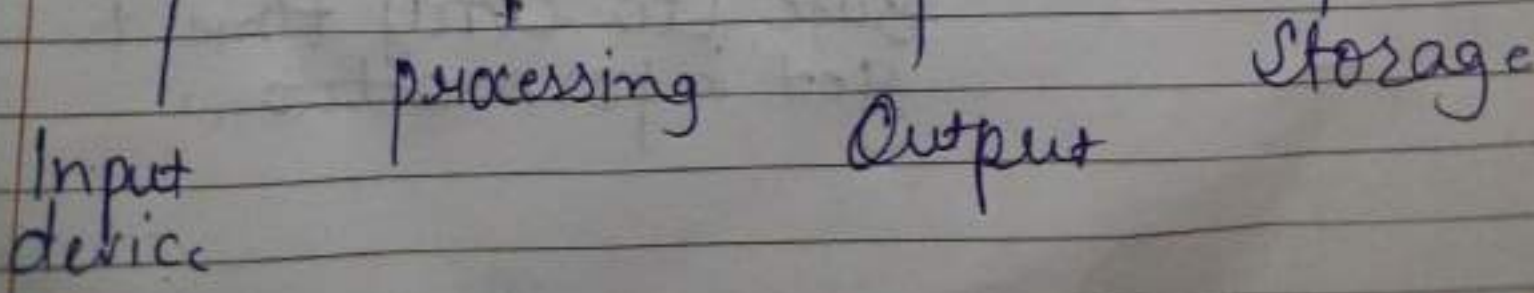 Input
device
processing
Output
Storage